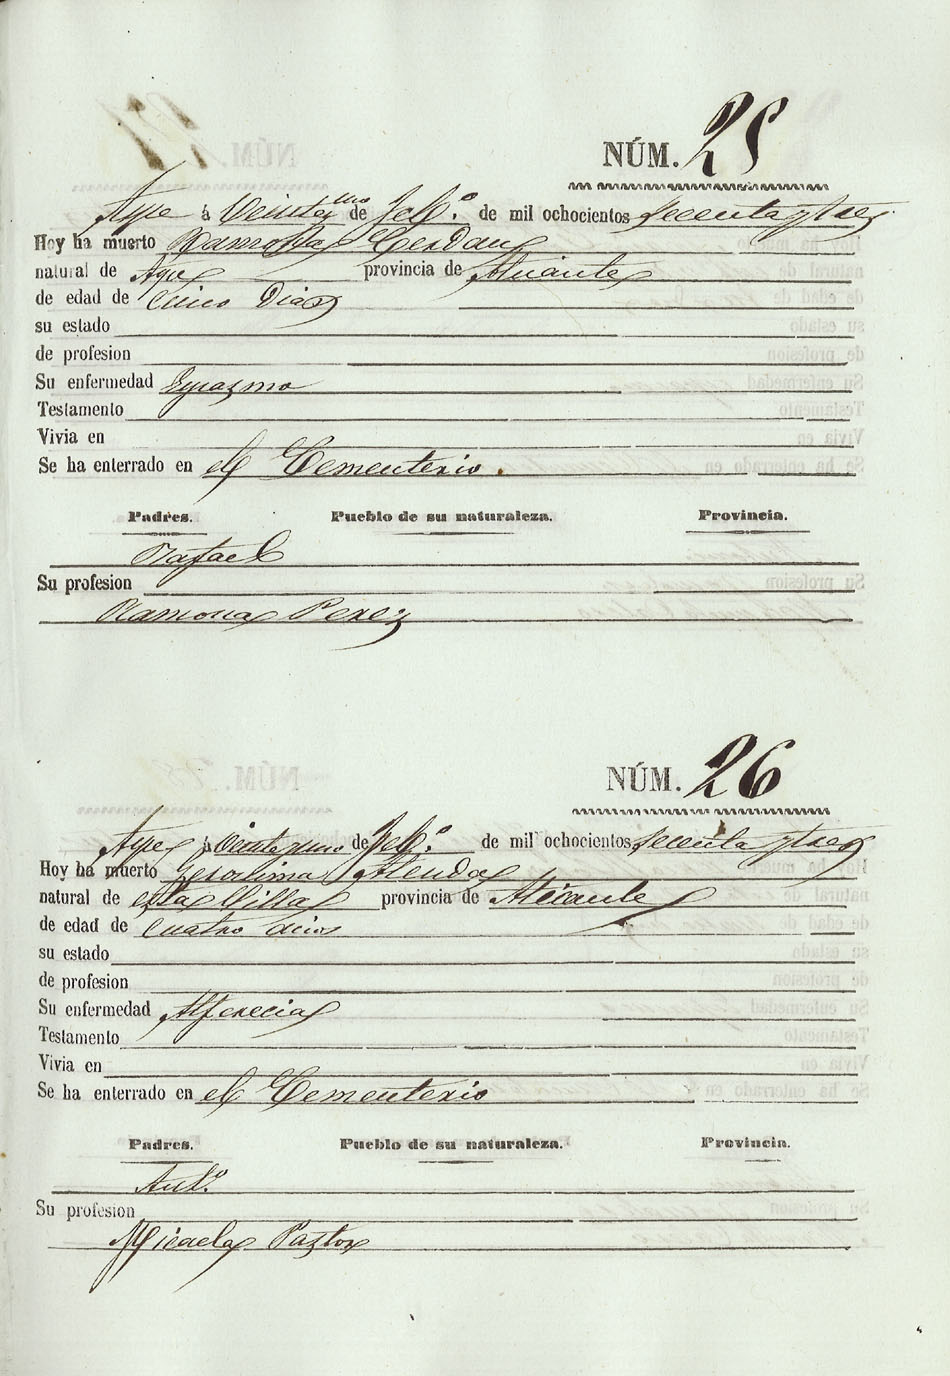 NÚM. 25
Aspe á Veinte y uno de Feb.º de mil ochocientos secenta y tres
Hoy ha muerto Ramona Cerdan
natural de Aspe provincia de Alicante
de edad de Cinco Dias
su estado
de profesion
Su enfermedad Espazmo
Testamento
Vivia en
Se ha enterrado en el Cementerio.
Padres. Pueblo de su naturaleza. Provincia.
Rafael
Su profesion
Ramona Perez
NÚM. 26
Aspe á Veinte y uno de Feb.º de mil ochocientos secenta y tres
Hoy ha muerto Geronima Almenda
natural de esta Villa provincia de Alicante
de edad de Cuatro años
su estado
de profesion
Su enfermedad Alferecia
Testamento
Vivia en
Se ha enterrado en el Cementerio
Padres. Pueblo de su naturaleza. Provincia.
Ant.º
Su profesion
Micaela Paztor